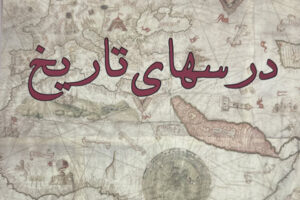 درسهای تاریخ